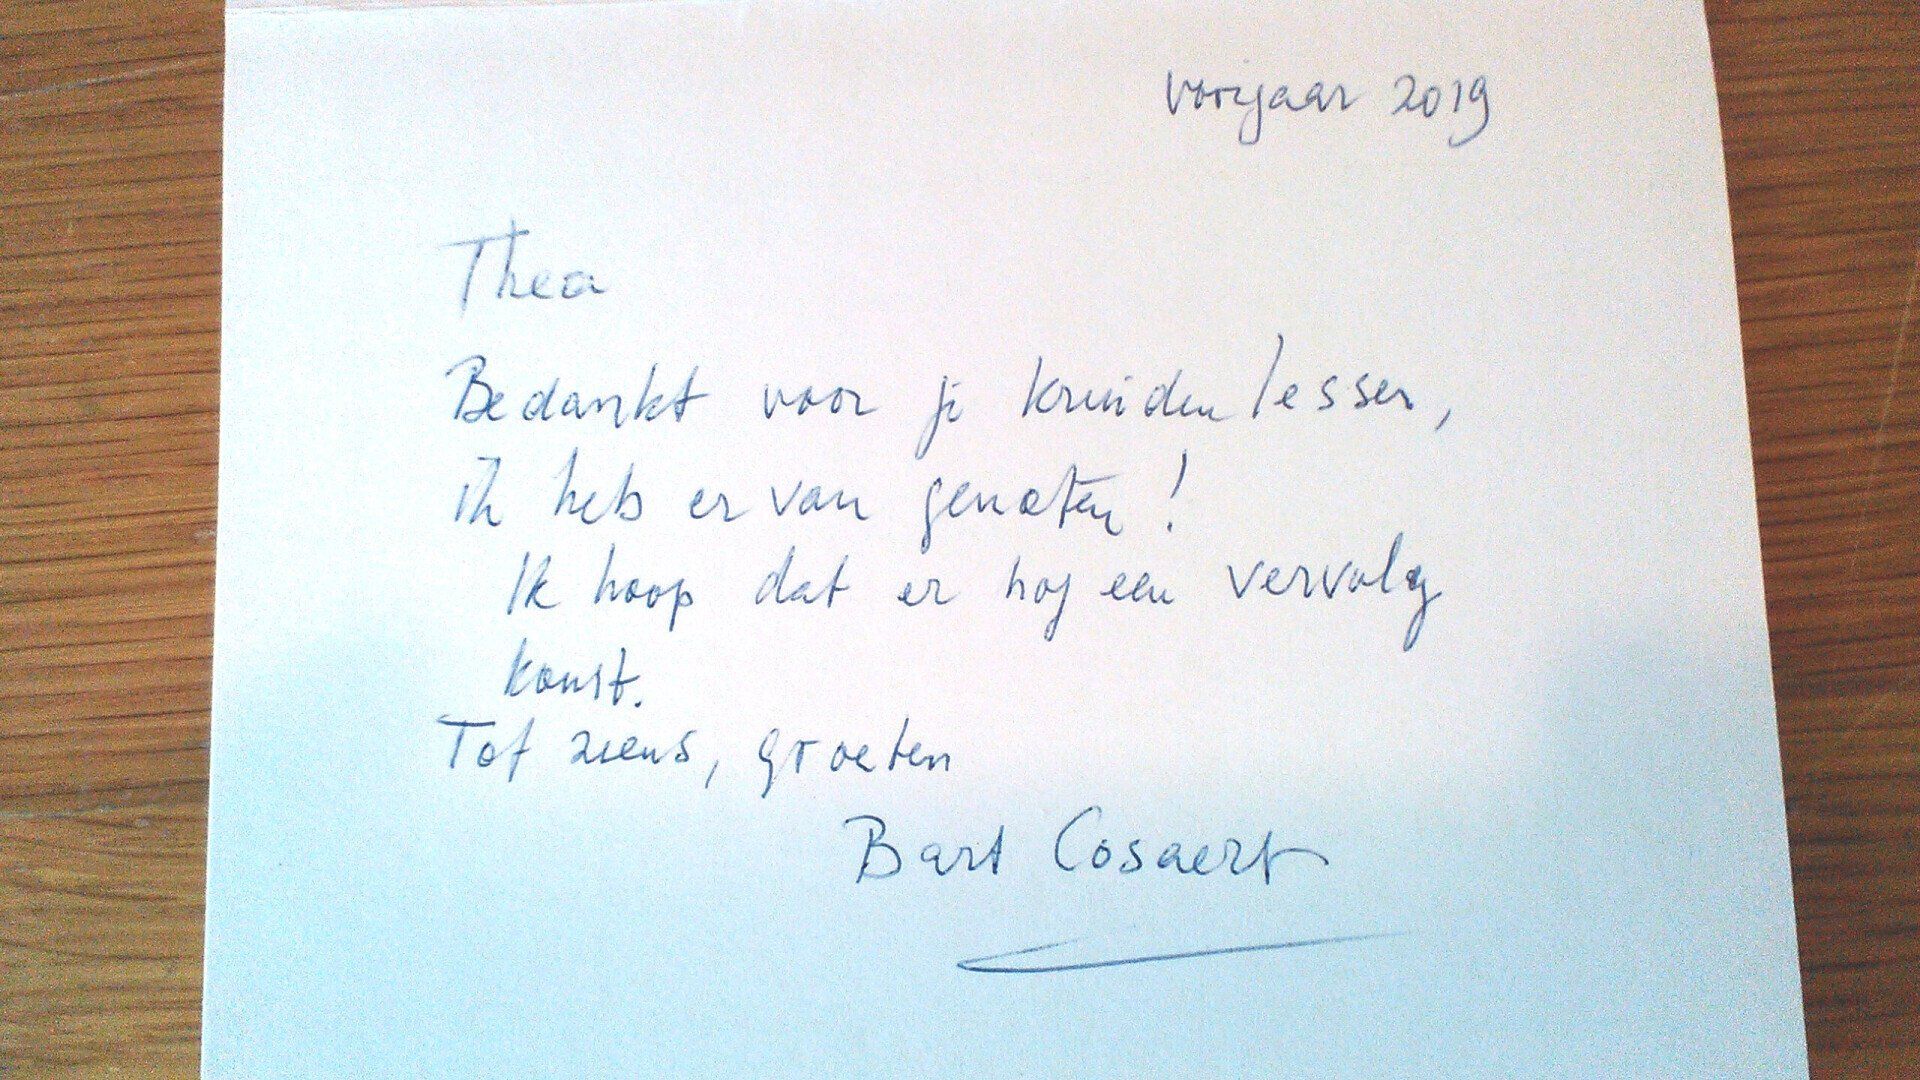 voorjaar 2019
Thea
Bedankt voor je kruidenlessen,
ik heb er van genoten!
Ik hoop dat er nog een vervolg
komt.
Tot ziens, groeten
Bart Cosaert